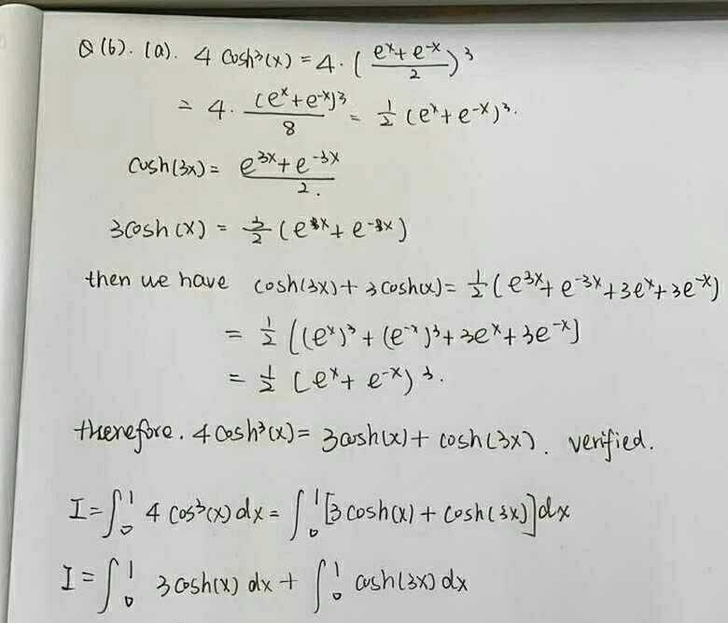 Q(6). (a). 4 cosh³(x) = 4 · ( (eˣ + e⁻ˣ)/2 )³
= 4 · (eˣ + e⁻ˣ)³/8 = 1/2 (eˣ + e⁻ˣ)³.
cosh(3x) = (e³ˣ + e⁻³ˣ)/2.
3cosh(x) = 3/2 (eˣ + e⁻ˣ)
then we have cosh(3x) + 3cosh(x) = 1/2 (e³ˣ + e⁻³ˣ + 3eˣ + 3e⁻ˣ)
= 1/2 [(eˣ)³ + (e⁻ˣ)³ + 3eˣ + 3e⁻ˣ]
= 1/2 (eˣ + e⁻ˣ)³.
therefore. 4cosh³(x) = 3cosh(x) + cosh(3x). verified.
I = ∫₀¹ 4 cos³(x) dx = ∫₀¹ [3 cosh(x) + cosh(3x)] dx
I = ∫₀¹ 3cosh(x) dx + ∫₀¹ cosh(3x) dx